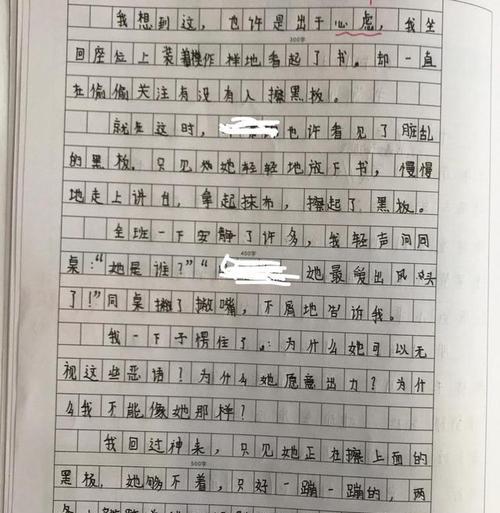 我想到这，也许是出于心虚，我坐
300字
回座位上装着模作样地看起了书。却一直
在偷偷关注有没有人擦黑板。
就在这时，也许看见了脏乱
的黑板。只见她轻轻地放下书，慢慢
地走上讲台，拿起抹布，擦起了黑板。
全班一下安静了许多，我轻声问同
400字
桌：“她是谁？”“她最爱出风头
了！”同桌撇了撇嘴，不屑地告诉我。
我一下子愣住了。：为什么她可以无
视这些恶语？为什么她愿意出力？为什
么我不能像她那样？
我回过神来，只见她正在擦上面的
500字
黑板，她够不着，只好一蹦一蹦的，两